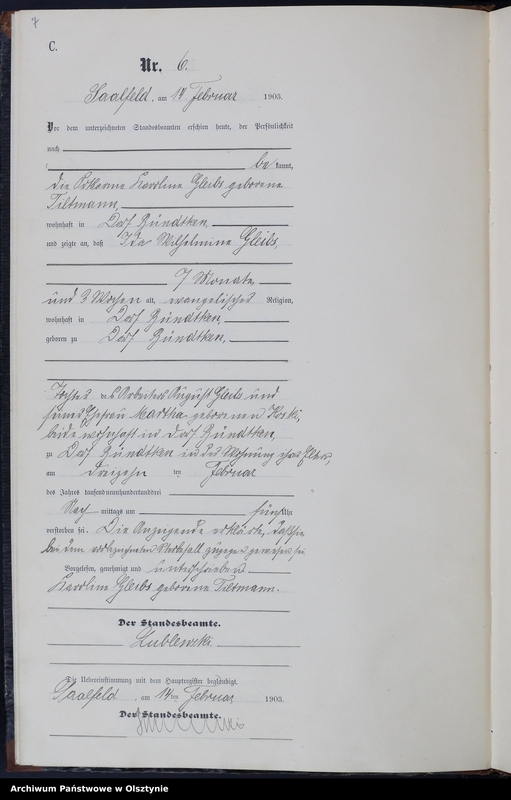 7
C.
Nr. 6.
Saalfeld, am 14. Februar 1903.
Vor dem unterzeichneten Standesbeamten erschien heute, der Persönlichkeit
nach
be kannt,
die Karoline Gleibs geborene
Tiltmann,
wohnhaft in Dorf Bündtken,
und zeigte an, daß Ida Wilhelmine Gleibs,
7 Monate
und 3 Wochen alt, evangelischer Religion,
wohnhaft in Dorf Bündtken,
geboren zu Dorf Bündtken,
Tochter des Arbeiters August Gleibs und
seiner Ehefrau Martha geborenen
beide wohnhaft in Dorf Bündtken,
zu Dorf Bündtken in der Wohnung ihrer Eltern,
am dreizehn ten Februar
des Jahres tausendneunhundertunddrei
Nach mittags um fünf Uhr
verstorben sei. Die Anzeigende erklärte, daß sie
bei dem vorbezeichneten Sterbefall zugegen gewesen sei.
Vorgelesen, genehmigt und unterschrieben
Karoline Gleibs geborene Tiltmann.
Der Standesbeamte.
Lublewski.
Die Uebereinstimmung mit dem Hauptregister beglaubigt.
Saalfeld, am 14 ten Februar 1903.
Der Standesbeamte.
Archiwum Państwowe w Olsztynie